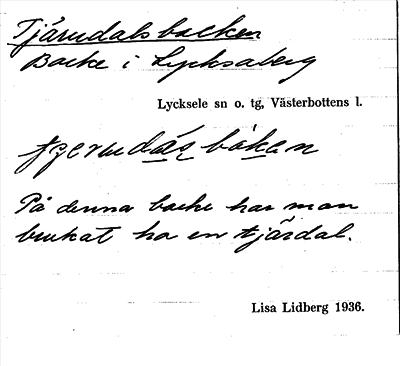 Tjärndalsbacken
Backe i Lycksaberg
Lycksele sn o. tg, Västerbottens l.
På denna backe har man
brukat ha en tjärdal.
Lisa Lidberg 1936.